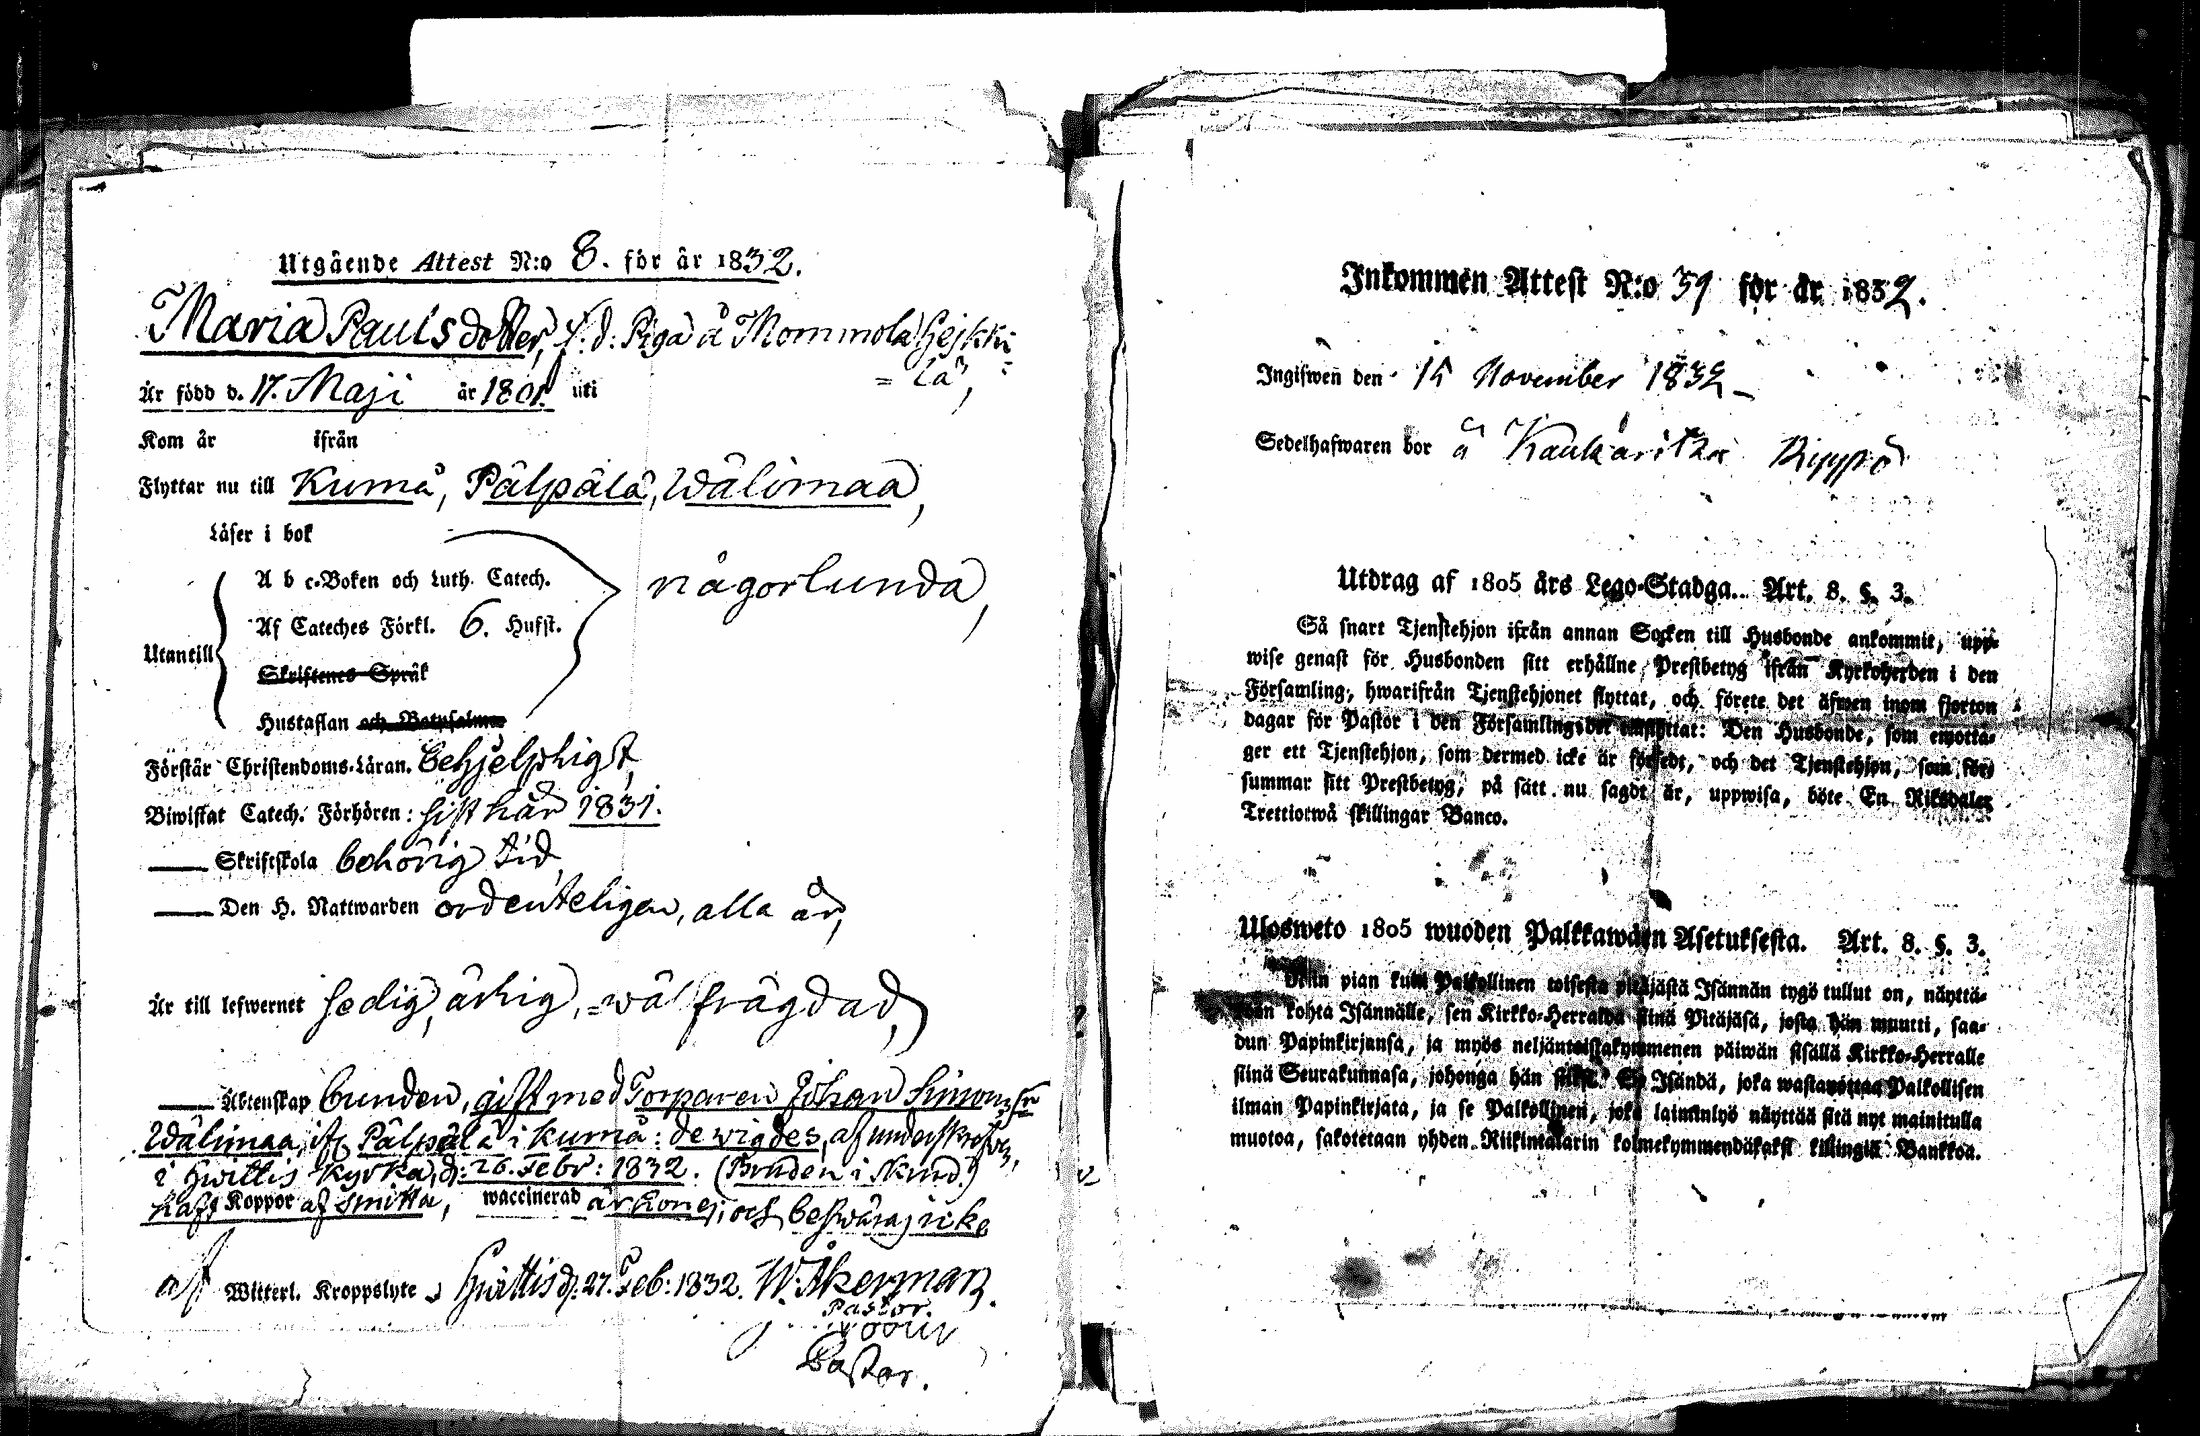 Utgående Attest N:o 8. för år 1832.
Maria Paulsdotter, f.d. Piga å Mommola Hejkki-
= lä,
Är född d. 17. Maji år 1801. uti
Kom år ifrån
Flyttar nu till Kumå, Pälpälä, Wälimaa,
Läser i bok
A b c-Boken och Luth. Catech. någorlunda,
Af Cateches Förkl. 6. Hufst.
Utantill
Skriftenes Språk
Hustaflan och Botpsalmer
Förstår Christendoms-Läran. behjelpligt,
Biwistat Catech. Förhören: sist här 1831.
Skriftskola behörig tid,
Den H. Nattwarden ordenteligen, alla år,
Är till lefwernet sedig, ärlig, =wäl frägdad,
Äktenskap bunden, gift med Torparen Johan Simonss:n
Wälimaa, ifr. Pälpälä i Kumå: de wigdes, af underskrefwen,
i Hwittis Kyrka, d: 26. Febr: 1832. (Bruden i Skrud.)
haft Koppor af smitta, waccinerad är hon ej; och beswäras icke
af Witterl. Kroppslyte. Hwittis d: 27. Feb: 1832. W. Åkerman.
Pastor.
Pastor.
Inkommen Attest N:o 39 för år 1832.
Ingifwen den 15 November 1832
Sedelhafwaren bor å Kaukaritza Ryypö
Utdrag af 1805 års Lego-Stadga. Art. 8. §. 3.
Så snart Tjenstehjon ifrån annan Socken till Husbonde ankommit, upp-
wise genast för Husbonden sitt erhållne Prestbetyg ifrån Kyrkoherden i den
Församling, hwarifrån Tjenstehjonet flyttat, och förete det äfwen inom fjorton
dagar för Pastor i den Församling, der inflyttat: Den Husbonde, som emotta-
ger ett Tjenstehjon, som dermed icke är försedt, och det Tjenstehjon, som för-
summar sitt Prestbetyg, på sätt nu sagdt är, uppwisa, böte En Riksdaler
Trettiotwå skillingar Banco.
Ulosweto 1805 wuoden Palkkawäen Asetuksesta. Art. 8. §. 3.
Niin pian kuin Palkollinen toisesta pitäjästä Isännän tygö tullut on, näyttä-
kään kohta Isännälle, sen Kirkko-Herralda siinä Pitäjäsä, josta hän muutti, saa-
dun Papinkirjansa, ja myös neljäntoistakymmenen päiwän sisällä Kirkko-Herralle
siinä Seurakunnasa, johonga hän siirsi. Se Isändä, joka wastanottaa Palkollisen
ilman Papinkirjata, ja se Palkollinen, joka laiminlyö näyttää sitä nyt mainitulla
muotoa, sakotetaan yhden Riikintalarin kolmekymmendäkaksi killingiä Bankkoa.